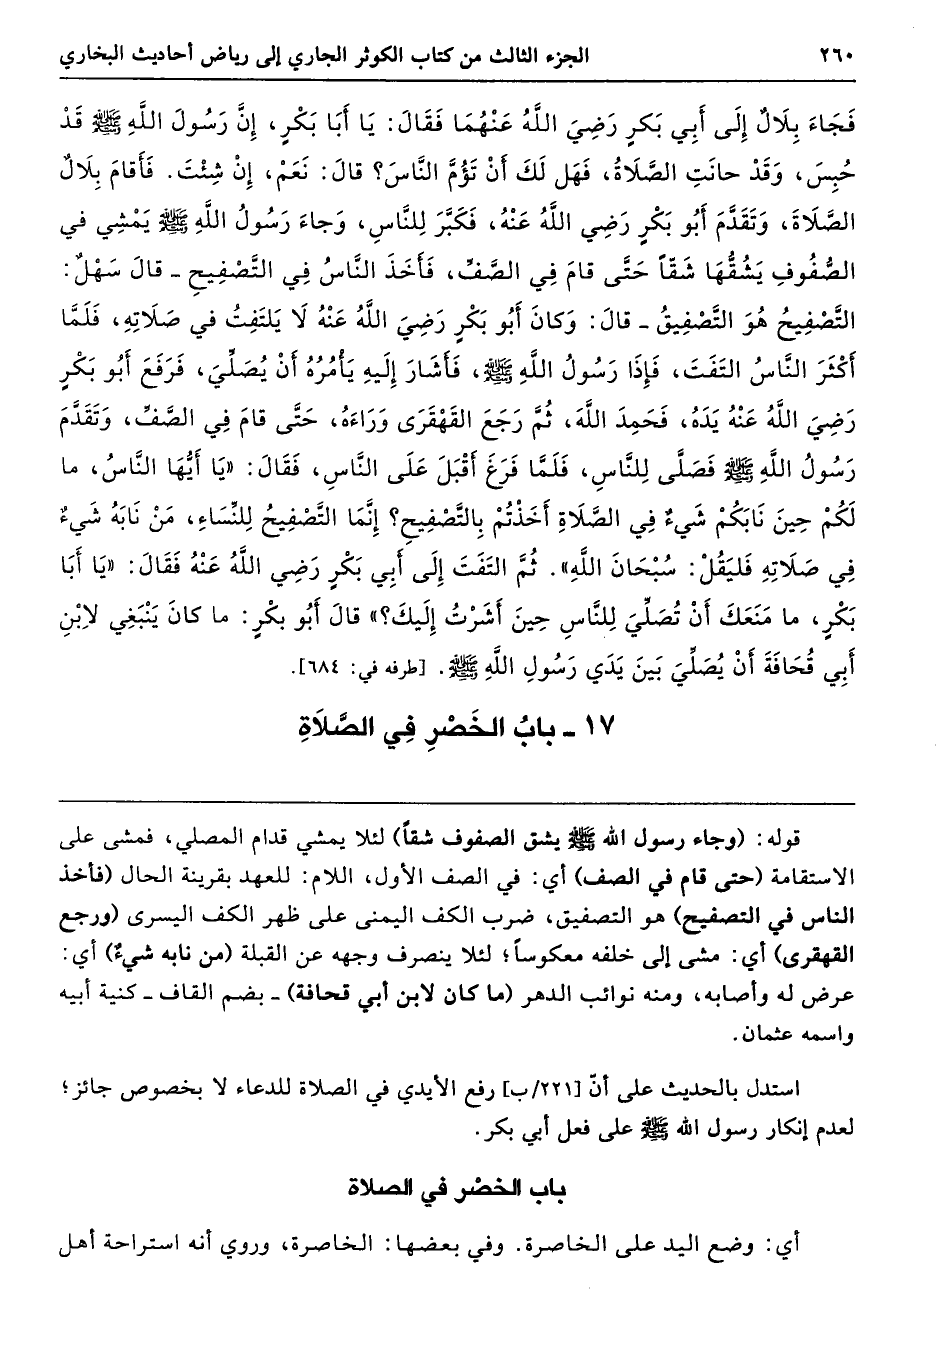 ٢٦٠ الجزء الثالث من كتاب الكوثر الجاري إلى رياض أحاديث البخاري
فَجَاءَ بِلَالٌ إِلَى أَبِي بَكرٍ رَضِيَ اللَّهُ عَنْهُمَا فَقَالَ: يَا أَبَا بَكْرٍ، إِنَّ رَسُولَ اللَّهِ ﷺ قَدْ
حُبِسَ، وَقَدْ حانَتِ الصَّلَاةُ، فَهَل لَكَ أَنْ تَؤُمَّ النَّاسَ؟ قالَ: نَعَمْ، إِنْ شِئْتَ. فَأَقامَ بِلَالٌ
الصَّلَاةَ، وَتَقَدَّمَ أَبُو بَكْرٍ رَضِي اللَّهُ عَنْهُ، فَكَبَّرَ لِلنَّاسِ، وَجاءَ رَسُولُ اللَّهِ ﷺ يَمْشِي في
الصُّفُوفِ يَشُقُّهَا شَقّاً حَتَّى قامَ فِي الصَّفِّ، فَأَخَذَ النَّاسُ فِي التَّصْفِيحِ ـ قالَ سَهْلٌ:
التَّصْفِيحُ هُوَ التَّصْفِيقُ ـ قالَ: وَكانَ أَبُو بَكْرٍ رَضِيَ اللَّهُ عَنْهُ لَا يَلتَفِتُ في صَلَاتِهِ، فَلَمَّا
أَكْثَرَ النَّاسُ التَفَتَ، فَإِذَا رَسُولُ اللَّهِ ﷺ، فَأَشَارَ إِلَيهِ يَأْمُرُهُ أَنْ يُصَلِّيَ، فَرَفَعَ أَبُو بَكْرٍ
رَضِيَ اللَّهُ عَنْهُ يَدَهُ، فَحَمِدَ اللَّهَ، ثُمَّ رَجَعَ القَهْقَرَى وَرَاءَهُ، حَتَّى قامَ فِي الصَّفِّ، وَتَقَدَّمَ
رَسُولُ اللَّهِ ﷺ فَصَلَّى لِلنَّاسِ، فَلَمَّا فَرَغَ أَقْبَلَ عَلَى النَّاسِ، فَقَالَ: «يَا أَيُّهَا النَّاسُ، ما
لَكُمْ حِينَ نَابَكُمْ شَيءٌ فِي الصَّلَاةِ أَخَذْتُمْ بِالتَّصْفِيحِ؟ إِنَّمَا التَّصْفِيحُ لِلنِّسَاءِ، مَنْ نَابَهُ شَيءٌ
فِي صَلَاتِهِ فَليَقُلْ: سُبْحَانَ اللَّهِ». ثُمَّ التَفَتَ إِلَى أَبِي بَكْرٍ رَضِي اللَّهُ عَنْهُ فَقَالَ: «يَا أَبَا
بَكْرٍ، ما مَنَعَكَ أَنْ تُصَلِّيَ لِلنَّاسِ حِينَ أَشَرْتُ إِلَيكَ؟» قالَ أَبُو بكْرٍ: ما كانَ يَنْبَغِي لابْنِ
أَبِي قُحَافَةَ أَنْ يُصَلِّيَ بَينَ يَدَي رَسُولِ اللَّهِ ﷺ. [طرفه في: ٦٨٤].
١٧ ـ بابُ الخَصْرِ فِي الصَّلَاةِ
قوله: (وجاء رسول الله ﷺ يشق الصفوف شقاً) لئلا يمشي قدام المصلي، فمشى على
الاستقامة (حتى قام في الصف) أي: في الصف الأول، اللام: للعهد بقرينة الحال (فأخذ
الناس في التصفيح) هو التصفيق، ضرب الكف اليمنى على ظهر الكف اليسرى (ورجع
القهقرى) أي: مشى إلى خلفه معكوساً؛ لئلا ينصرف وجهه عن القبلة (من نابه شيءٌ) أي:
عرض له وأصابه، ومنه نوائب الدهر (ما كان لابن أبي قحافة) ـ بضم القاف ـ كنية أبيه
واسمه عثمان.
استدل بالحديث على أنّ [٢٢١/ب] رفع الأيدي في الصلاة للدعاء لا بخصوص جائز؛
لعدم إنكار رسول الله ﷺ على فعل أبي بكر.
باب الخصْر في الصلاة
أي: وضع اليد على الخاصرة. وفي بعضها: الخاصرة، وروي أنه استراحة أهل